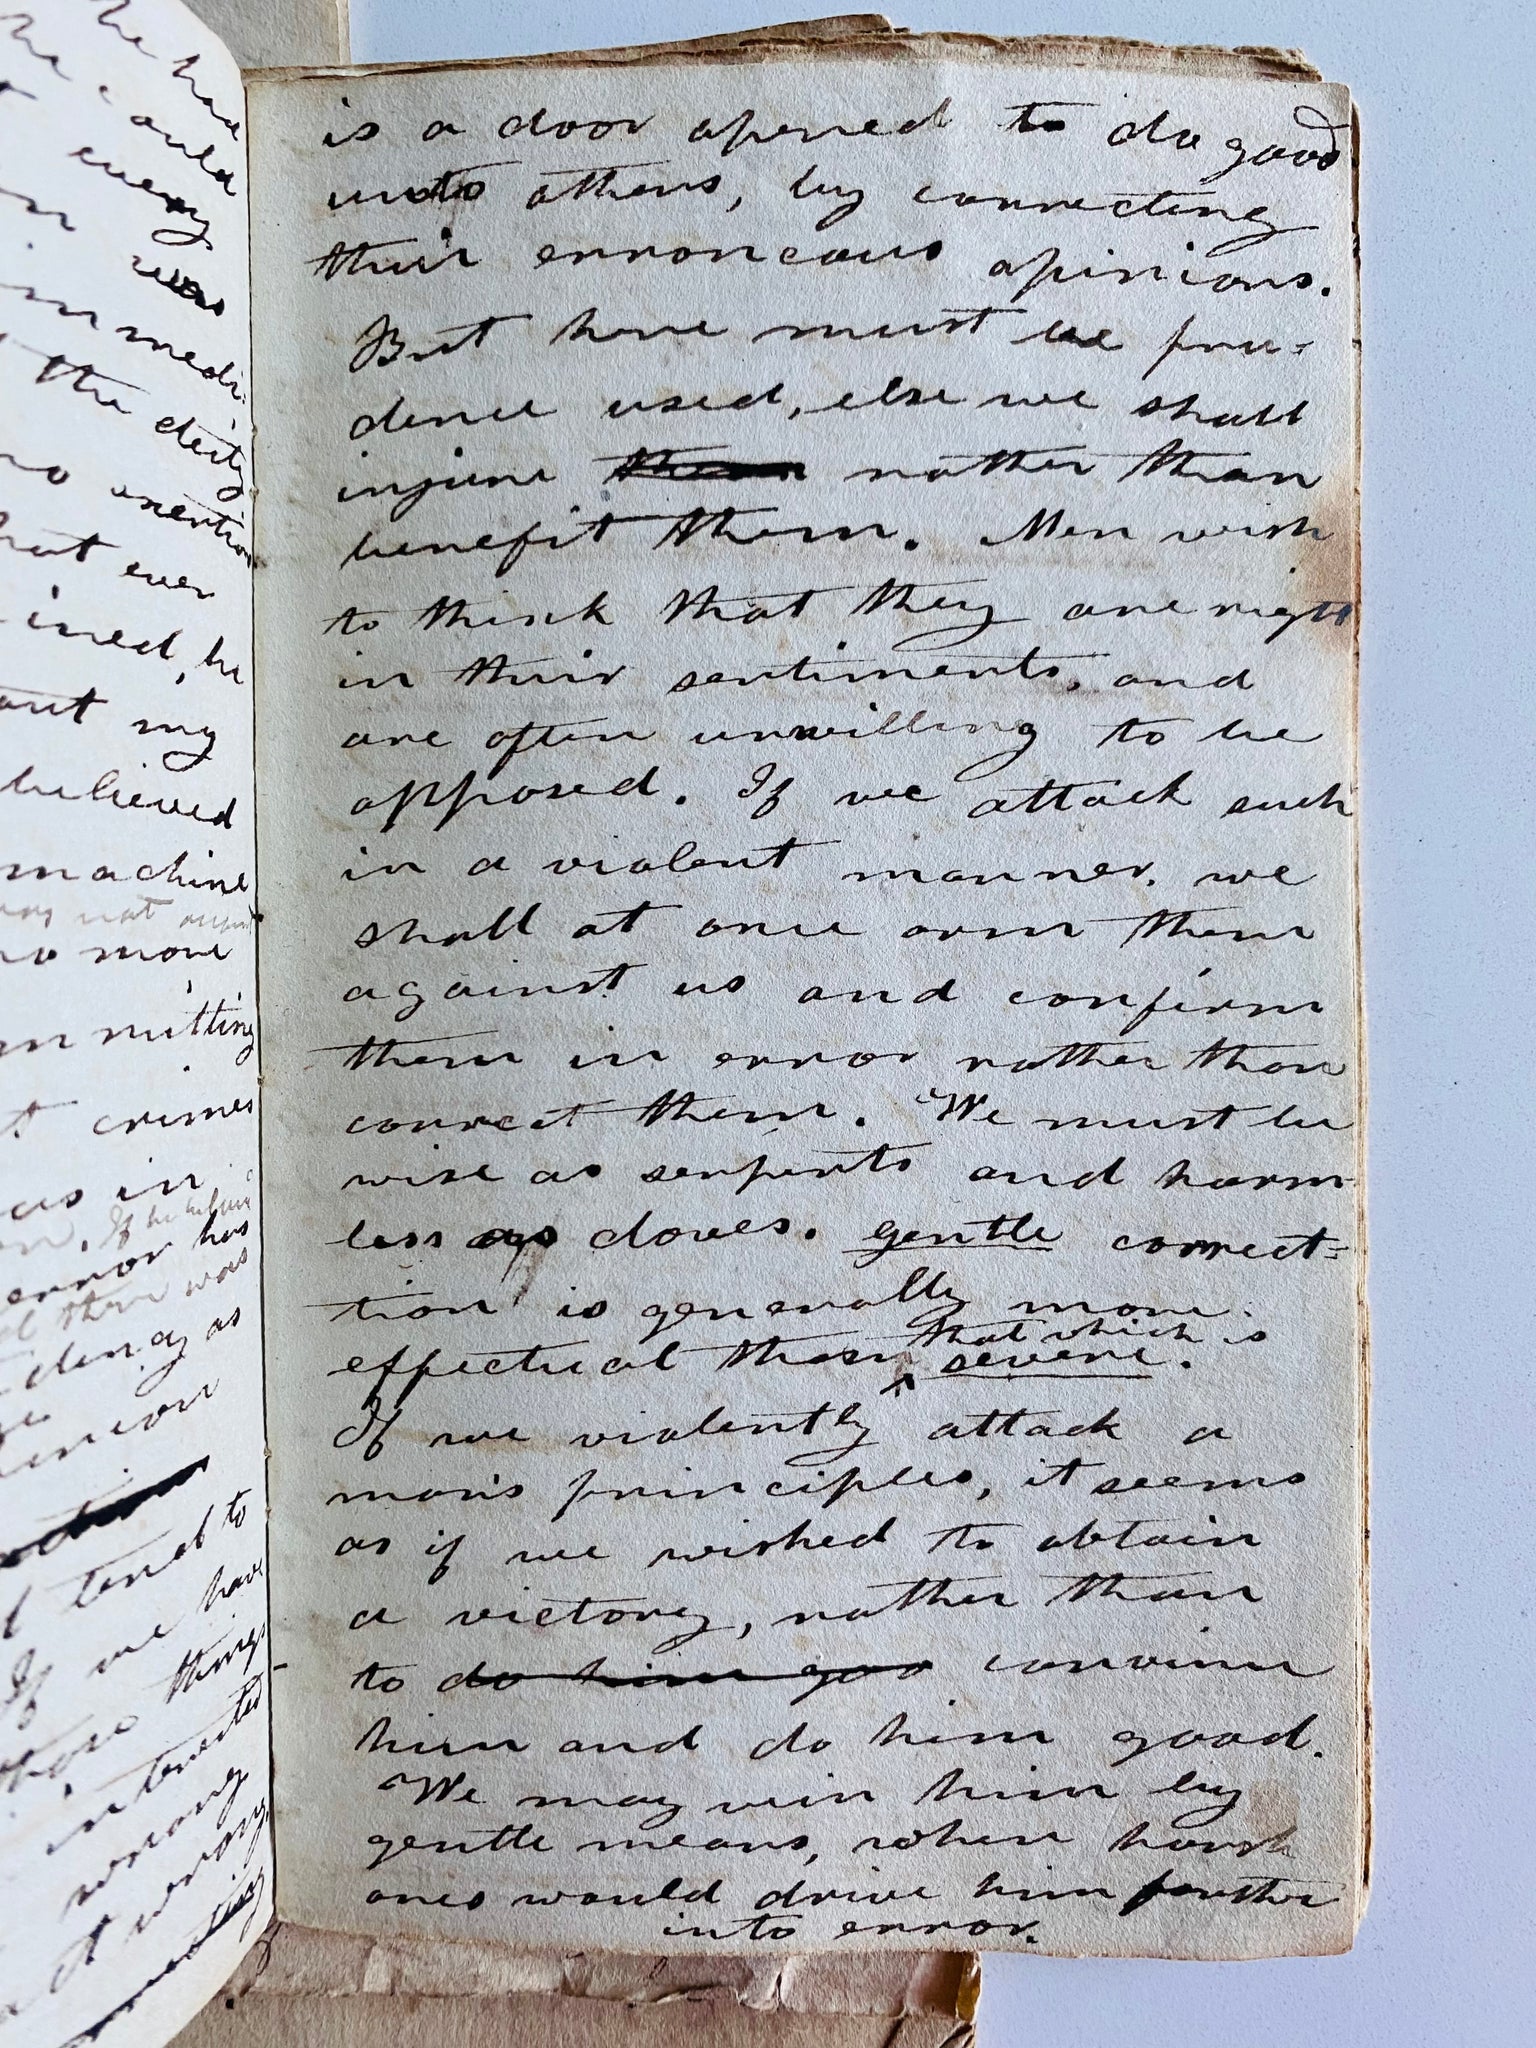 he had
he could
every
was
immedi-
the deity
no exertion
hat ever
ined, he
out my
believed
machine
was not
no more
mitting
t crimes
as in
If he
error has
there was
dency as
tend to
If we have
those things
interested
wrong
wrong.
is a door opened to do good
unto others, by correcting
their erroneous opinions.
But here must be pru=
dence used, else we shall
injure them rather than
benefit them. Men wish
to think that they are right
in their sentiments, and
are often unwilling to be
opposed. If we attack such
in a violent manner, we
shall at once arm them
against us and confirm
them in error rather than
correct them. We must be
wise as serpents and harm-
less as doves. gentle correct=
tion is generally more
that which is
effectual than ^ severe.
If we violently attack a
man's principles, it seems
as if we wished to obtain
a victory, rather than
to do him goo convince
him and do him good.
We may win him by
gentle means, when harsh
ones would drive him further
into error.